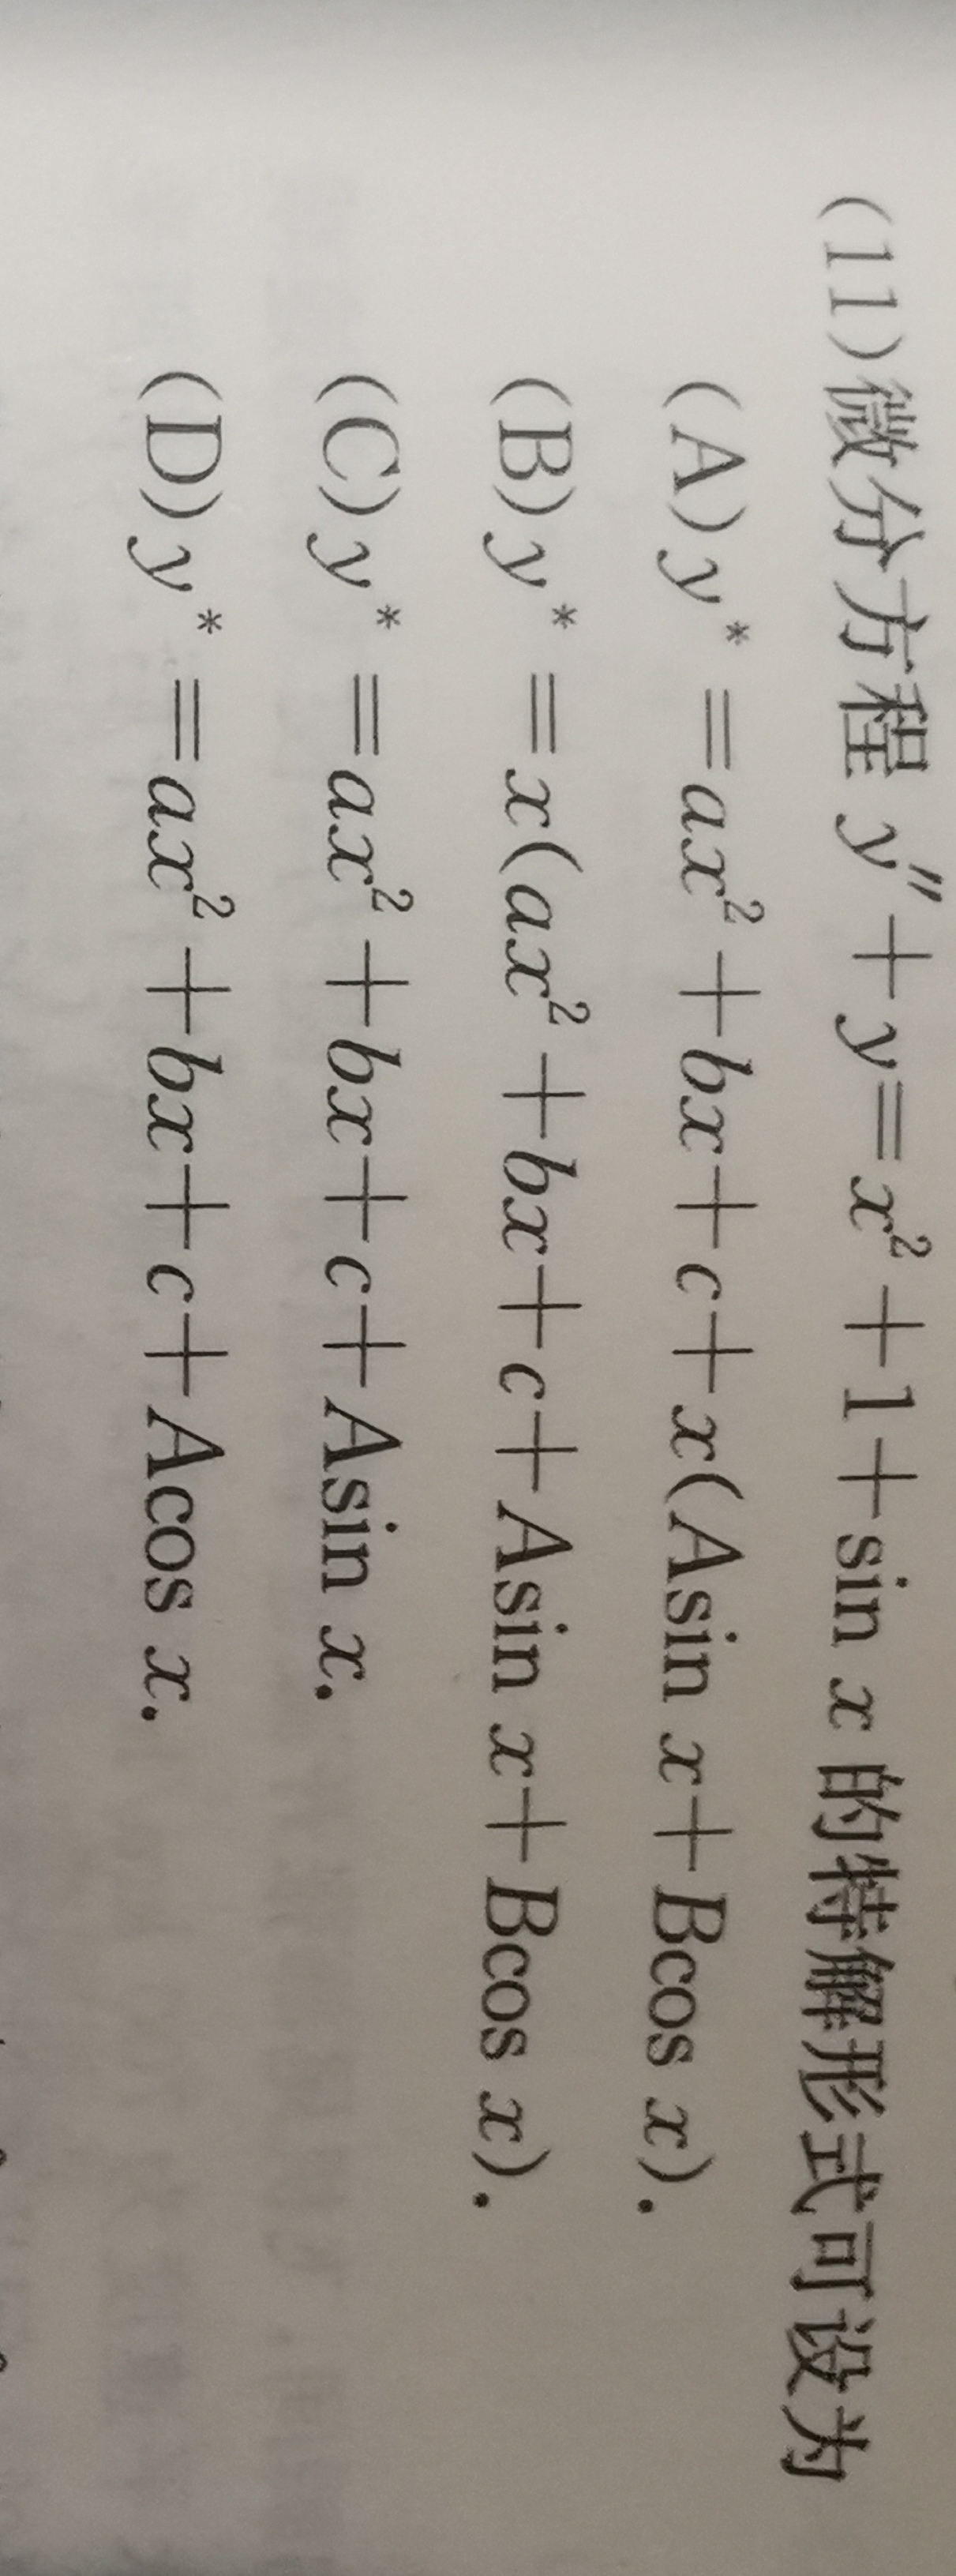 (11)微分方程 y″+y=x²+1+sin x 的特解形式可设为
(A)y*=ax²+bx+c+x(Asin x+Bcos x).
(B)y*=x(ax²+bx+c+Asin x+Bcos x).
(C)y*=ax²+bx+c+Asin x.
(D)y*=ax²+bx+c+Acos x.